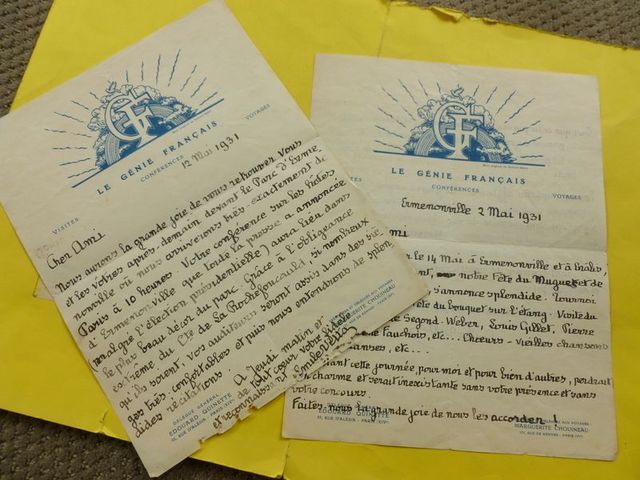 GF
LE GÉNIE FRANÇAIS
CONFÉRENCES
VISITES
VOYAGES
12 Mai 1931
Cher Ami
Nous aurons la grande joie de vous retrouver Vous
et les Votres après-demain devant le Parc d'Erme
nonville où nous arriverons très-exactement de
Paris à 10 heures. Votre conférence sur les Poètes
d'Ermenonville que toute la presse a annoncée
(malgré l'élection présidentielle) aura lieu dans
le plus beau décor du parc. Grâce à l'obligeance
extrême du Cte de La Rochefoucauld, si nombreux
qu'ils soient, vos auditeurs seront assis dans des siè
ges très confortables et puis nous entendrons de splen
dides récitations.
A Jeudi matin et
de tout cœur votre fidèle
et reconnaissant
DÉLÉGUÉ GÉNÉRAL
EDOUARD QUINETTE
PARIS-XIV
MARGUERITE CHOUINEAU
GF
LE GÉNIE FRANÇAIS
CONFÉRENCES
VOYAGES
Ermenonville 2 Mai 1931
Ami
le 14 Mai à Ermenonville et à Chális,
notre Fête du Muguet et de
s'annonce splendide. Tournoi
du bouquet sur l'étang. Visite du
Segond-Weber, Louis Gillet, Pierre
de Fauchois, etc... Chœurs - vieilles chansons
etc...
cette journée, pour moi et pour bien d'autres, perdrait
charme et serait inexistante sans votre présence et sans
votre concours.
Faites nous la grande joie de nous les accorder !
DÉLÉGUÉ GÉNÉRAL
EDOUARD QUINETTE
MARGUERITE CHOUINEAU